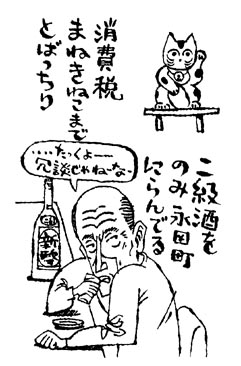 消費税
まねきねこまで
とばっちり
二級酒を
のみ永田町
にらんでる
……たっくよ──
冗談じゃねーな